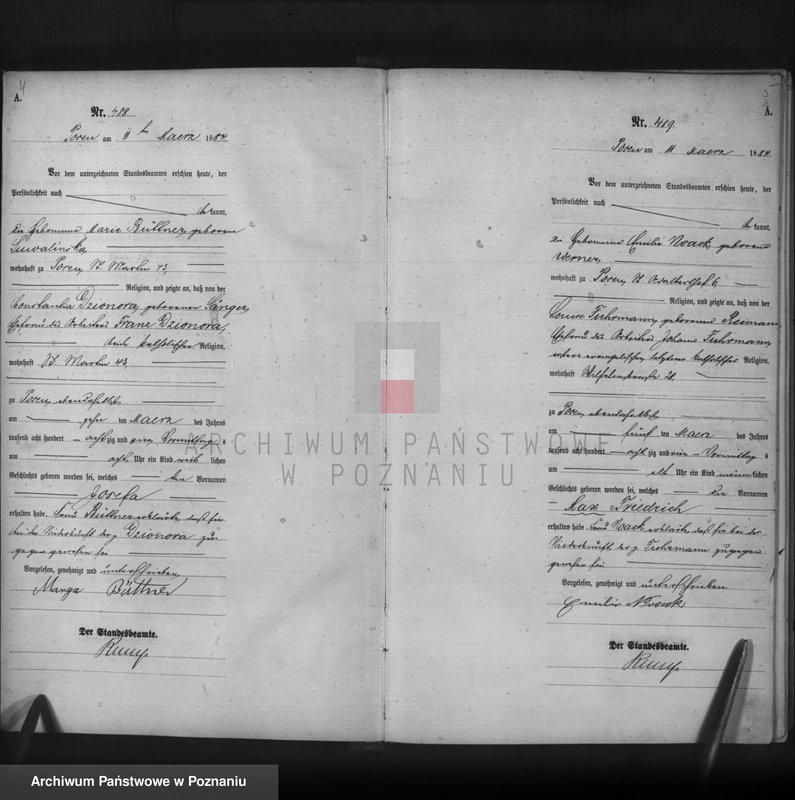 4
A.
Nr. 488
Posen am 11ten Maerz 1884
Vor dem unterzeichneten Standesbeamten erschien heute, der
Persönlichkeit nach
be kannt,
die Hebeamme Marie Büttner, geborene
wohnhaft zu Posen, St. Martin 43,
Religion, und zeigte an, daß von der
Constantia Dzionora, geborenen Sänger,
Ehefrau des Arbeiters Franz Dzionora,
beide katholischer Religion,
wohnhaft St. Martin 43,
zu Posen, ebendaselbst
am zehn ten Maerz des Jahres
tausend acht hundert achtzig und vier Vormittags
um acht Uhr ein Kind weib lichen
Geschlechts geboren worden sei, welches den Vornamen
Josefa
erhalten habe. Frau Büttner erklärte, daß sie
bei der Niederkunft der p. Dzionora zu-
gegen gewesen sei
Vorgelesen, genehmigt und unterschrieben
Büttner
Der Standesbeamte.
5
A.
Nr. 489
Posen am 11 Maerz 1884
Vor dem unterzeichneten Standesbeamten erschien heute, der
Persönlichkeit nach
be kannt,
die Hebeamme Emilie Noack, geborene
Werner,
wohnhaft zu Posen, St. Adalbertstraße 6
Religion, und zeigte an, daß von der
Louise Fuhrmann, geborenen Reimann
Ehefrau des Arbeiters Johann Fuhrmann,
erstere evangelischer, letzterer katholischer Religion,
wohnhaft
zu Posen, ebendaselbst
am fünf ten Maerz des Jahres
tausend acht hundert achtzig und vier Vormittag s
um elf Uhr ein Kind männ lichen
Geschlechts geboren worden sei, welches die Vornamen
Max Friedrich
erhalten habe. Frau Noack erklärte, daß sie bei der
Niederkunft der p. Fuhrmann zugegen
gewesen sei
Vorgelesen, genehmigt und unterschrieben
Emilie Noack
Der Standesbeamte.
ARCHIWUM PAŃSTWOWE
W POZNANIU
Archiwum Państwowe w Poznaniu